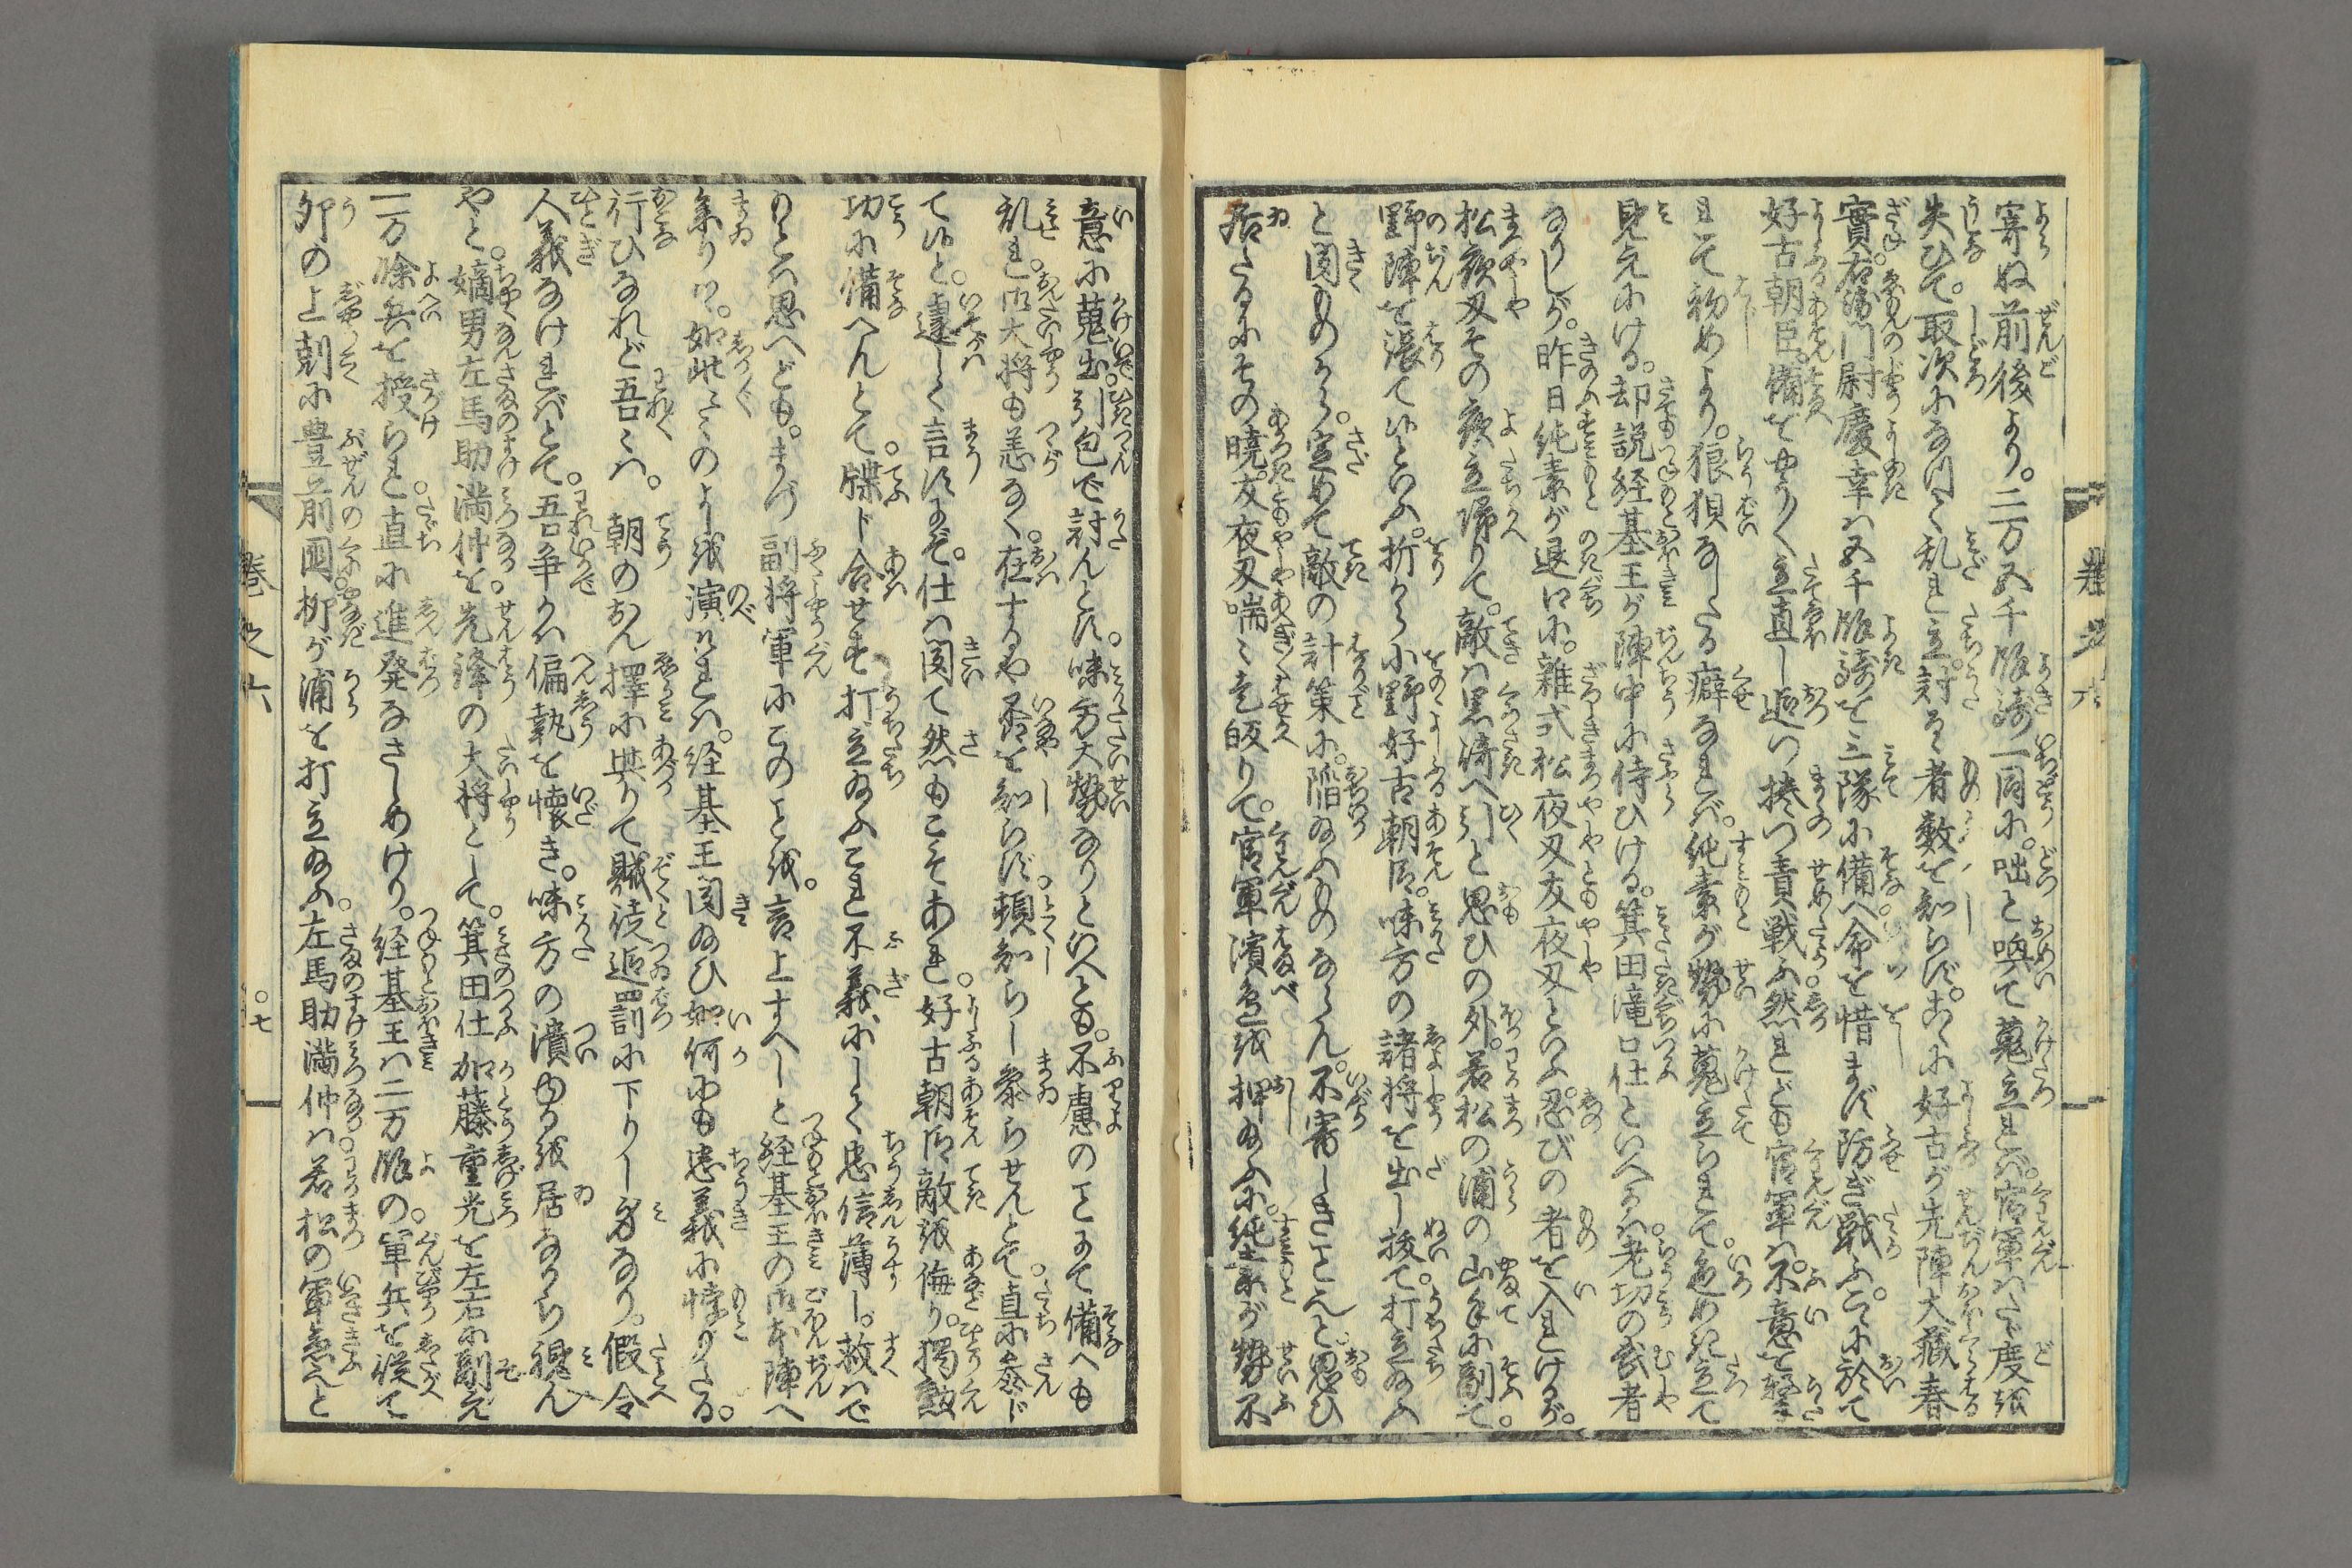 寄ぬ前後より。二万五千騎一同に。咄と喚て蒐立れば。官軍は度を
失ひて。取次になりて乱れ立。討るゝ者数を知らず。こゝに好古が先陣大蔵春
實。右衛門尉慶幸は五千餘騎を三隊に備へ命を惜まず防ぎ戦ふ。こゝに於て
好古朝臣。備をやうやく立直し追つ捲つ責戦ふ然れども官軍は。不意を撃
れて初めより。狼狽なしたる癖なれば。純素が勢に蒐立られて。色めき立て
見えにける。却説経基王が陣中に侍ひける。箕田滝口仕といへるは。老功の武者
なりしが。昨日純素が退口に。雑式松夜叉友夜叉といふ。忍びの者を入れけるが。
松夜叉その夜立帰りて。敵は黒崎へ引と思ひの外。若松の浦の山手に副て。
野陣を張て候といふ。折から小野好古朝臣。味方の諸将を出し抜て打立給ふ
と聞ものから。定めて敵の計策に。陥給ふものならん。不審しきことゝ。思ひ
居たるにその暁。友夜叉喘ぎ走皈りて。官軍濱邊を押給ふに。純素が勢不
巻之六
意に蒐出。引包で討んとす。味方大勢なりといへとも。不慮のことにて備へも
乱れ。御大将も恙なく。在するや否を知らず。頓知らし参らせんとて。直に参ド
て候と。遽しく言すにぞ。仕は聞て然もこそあれ。好古朝臣敵を侮り。獨勲
功に備へんとて。牒ド合せず打立給ふこれ不義にして忠信薄し。救はで
ものことゝは思へども。まづ副将軍にこのことを。言上すへしと経基王の御本陣へ
参りつ。如此〻のよしを演ければ。経基王聞給ひ如何にも忠義に悖りたる。
行ひなれど吾〻は。朝のおん擇に與りて賊徒追罰に下りし身なり。假令
人義なければとて。吾争か偏執を懐き。味方の潰ゆるを居ながら視ん
やと。嫡男左馬助満仲を。先鋒の大将として。箕田仕加藤重光を左右に副え
一万餘兵を授られ。直に進発なさしめけり。経基王は二万餘の。軍兵を従て
卯の上剋に豊前國。柳が浦を打立給ふ。左馬助満仲は。若松の軍急へと
巻之六
〇七